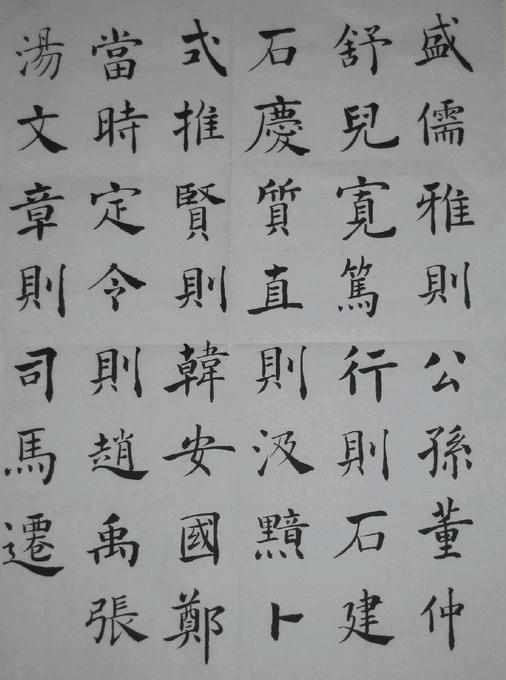 盛儒雅則公孫董仲
舒兒寬篤行則石建
石慶質直則汲黯卜
式推賢則韓安國鄭
當時定令則趙禹張
湯文章則司馬遷